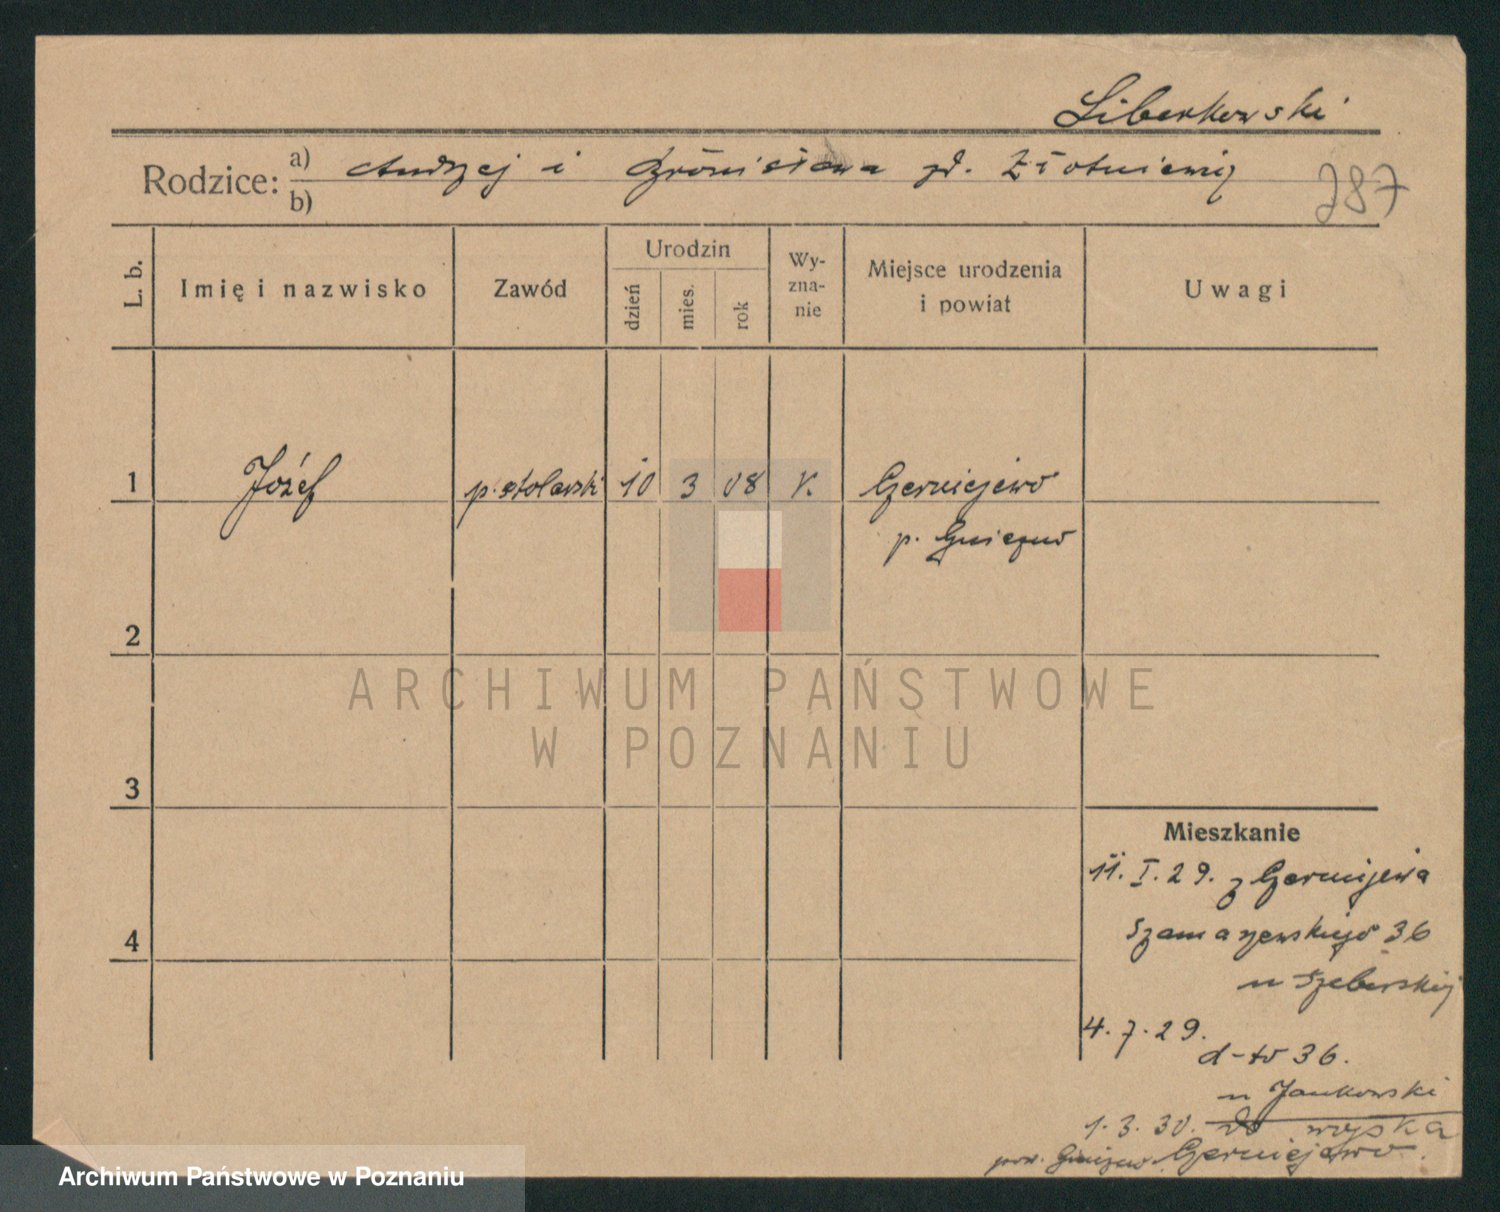 Liberkowski
Rodzice: a) Andrzej i Bronisława zd. Złotniewicz
b)
787
L. b.
Imię i nazwisko
Zawód
Urodzin
dzień
mies.
rok
Wy-
zna-
nie
Miejsce urodzenia
i powiat
Uwagi
1 Józef p. stolarski 10 3 08 k. Czerniejewo
p. Gniezno
2
ARCHIWUM PAŃSTWOWE
W POZNANIU
3
Mieszkanie
11. I. 29. z Czerniejewa
4
Szamarzewskiego 36
u
4. 7. 29.
d-to 36.
u Jankowski
1. 3. 30. do wojska
pow. Gniezno Czerniejewo.
Archiwum Państwowe w Poznaniu